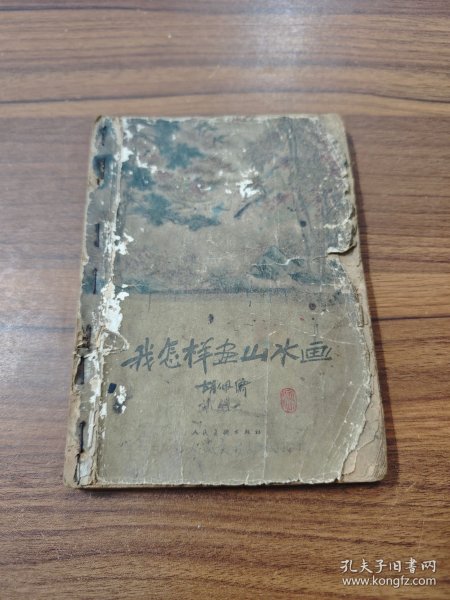 我怎样画山水画
胡佩衡
人民美术出版社
孔夫子旧书网
www.kongfz.com